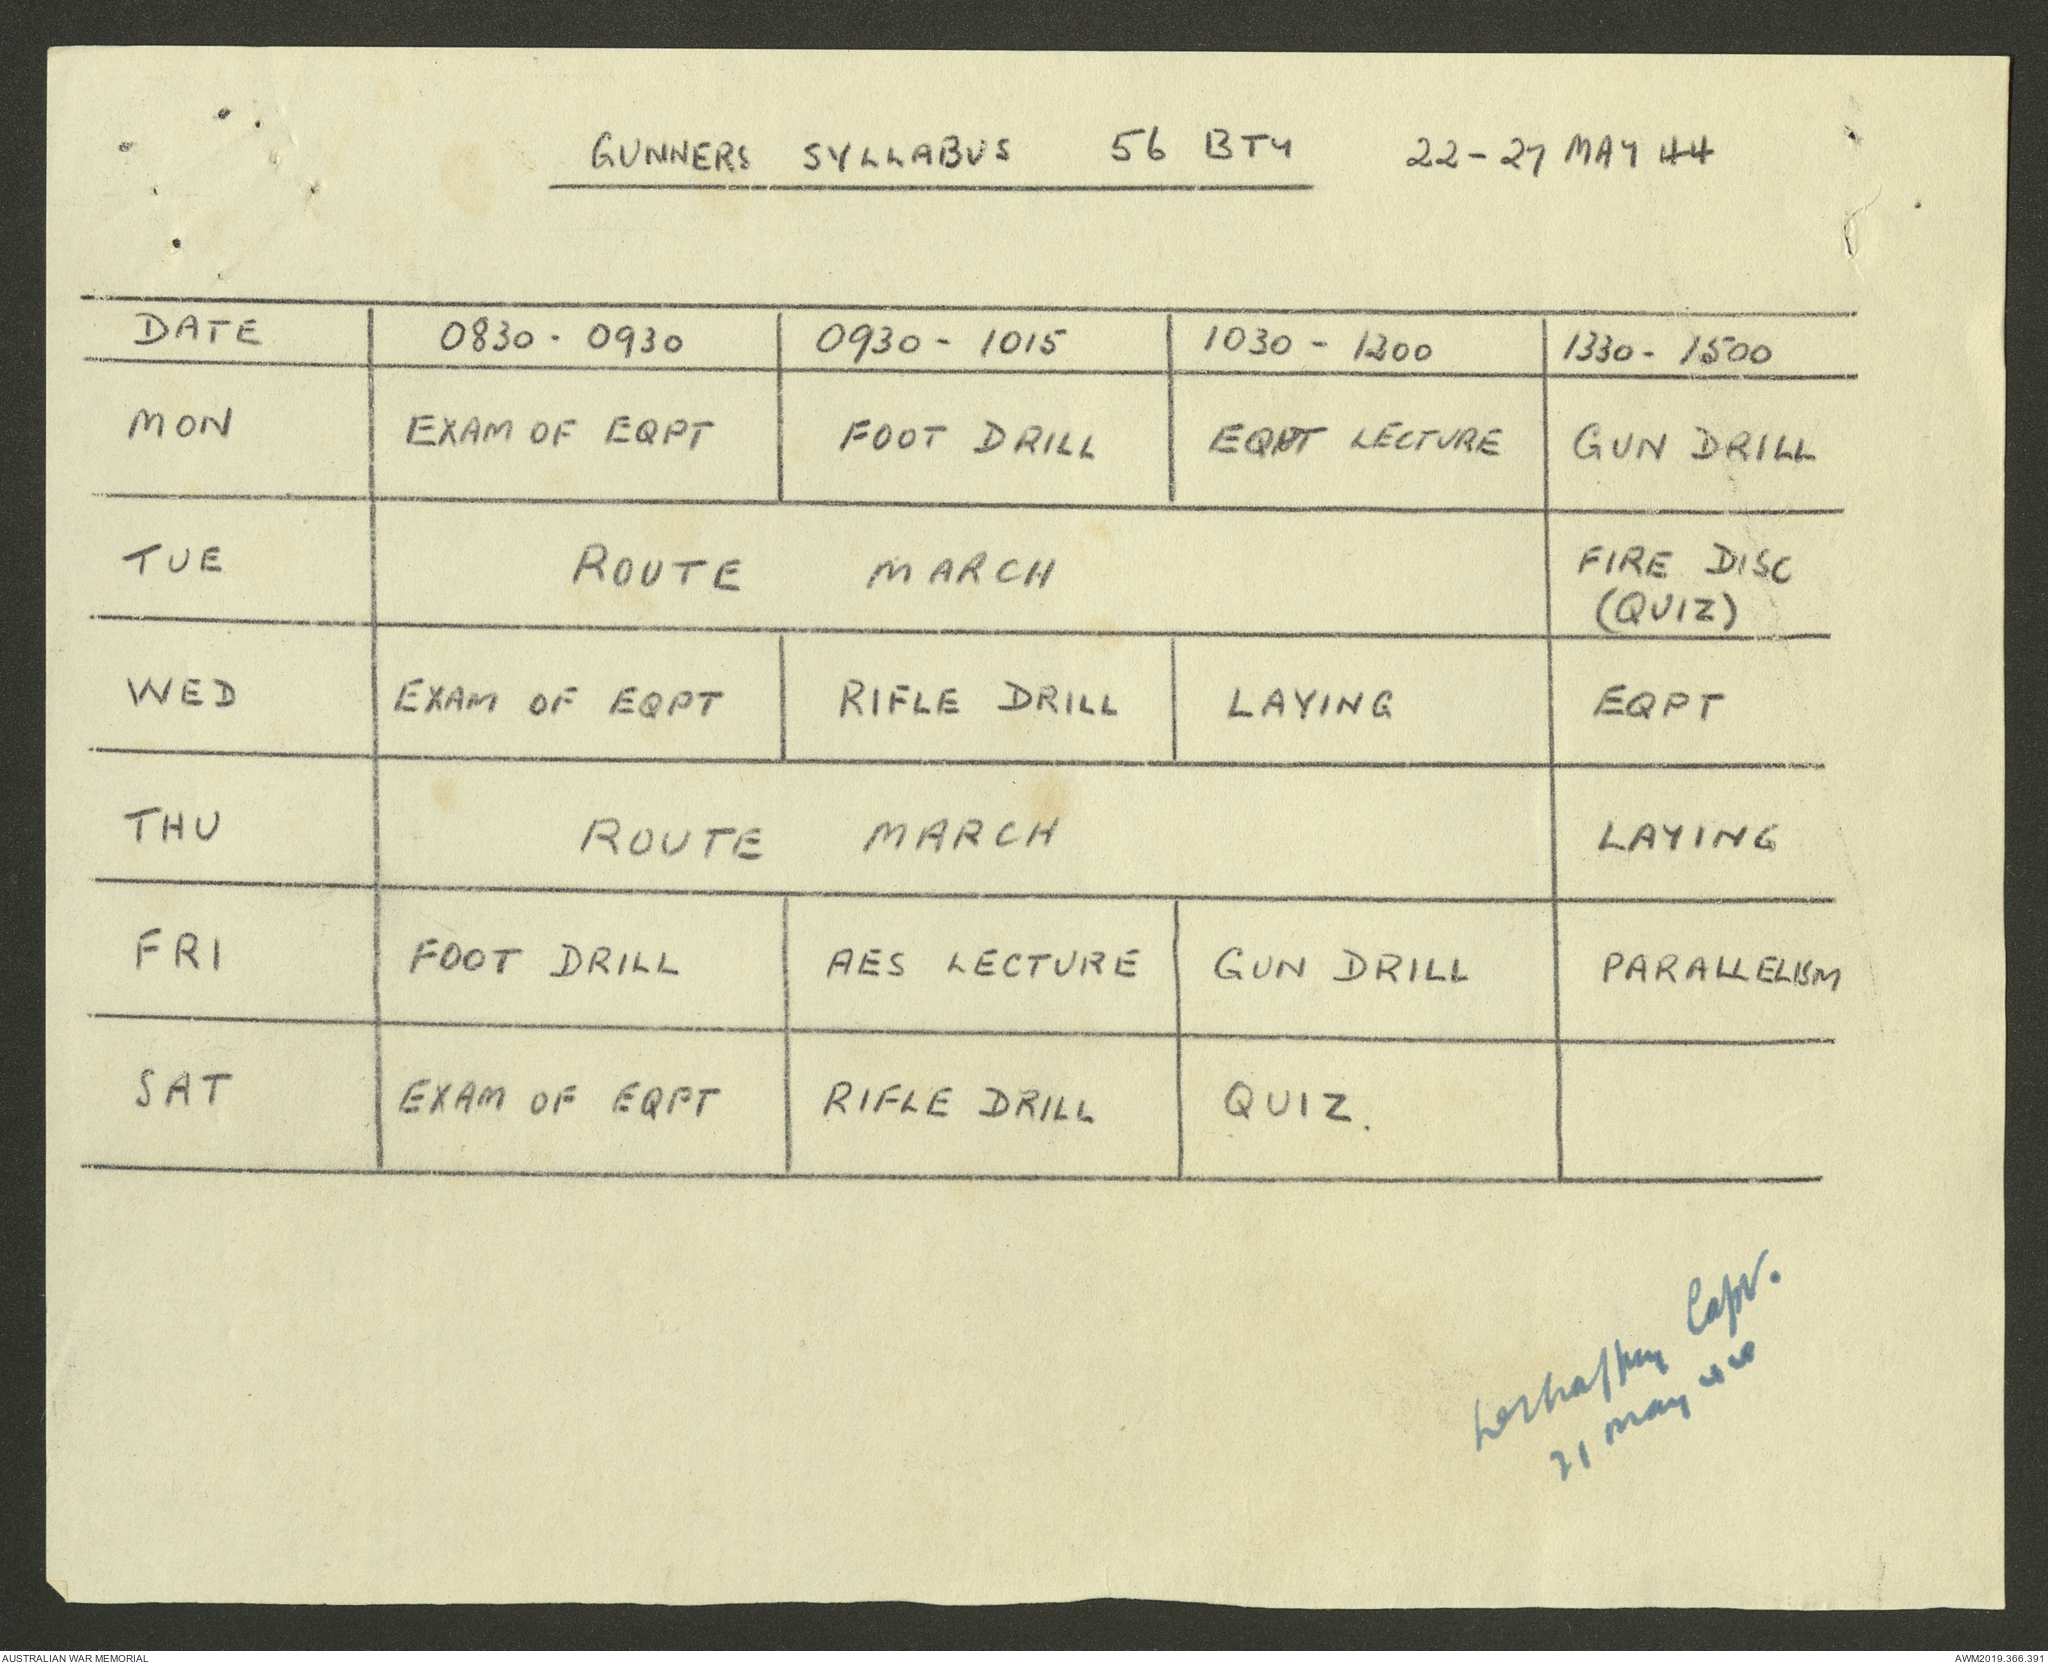 GUNNERS SYLLABUS 56 BTY 22-27 MAY 44
DATE 0830 - 0930 0930 - 1015 1030 - 1200 1330 - 1500
MON EXAM OF EQPT FOOT DRILL EQPT LECTURE GUN DRILL
TUE ROUTE MARCH FIRE DISC
(QUIZ)
WED EXAM OF EQPT RIFLE DRILL LAYING EQPT
THU ROUTE MARCH LAYING
FRI FOOT DRILL AES LECTURE GUN DRILL PARALLELISM
SAT EXAM OF EQPT RIFLE DRILL QUIZ.
Capt.
21 May 44
AUSTRALIAN WAR MEMORIAL AWM2019.366.391